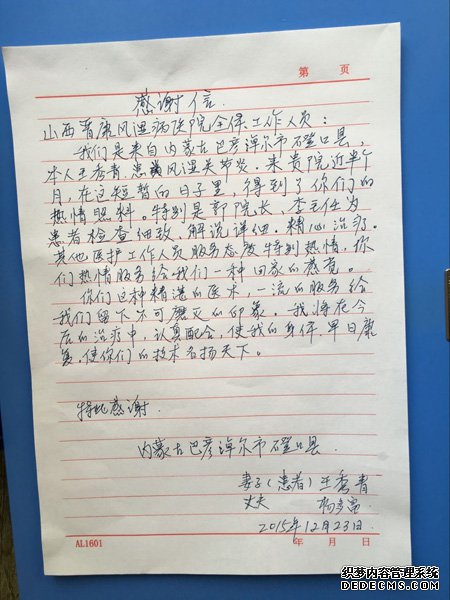 第 页
感谢信
山西晋康风湿病医院全体工作人员：
我们是来自内蒙古巴彦淖尔市磴口县，
本人王秀青患病风湿关节炎。来贵院近半个
月，在这短暂的日子里，得到了你们的
热情照料。特别是郭院长，李主任为
患者检查细致，解说详细。精心治疗。
其他医护工作人员服务态度特别热情，你
们热情服务给我们一种回家的感觉。
你们这种精湛的医术，一流的服务给
我们留下不可磨灭的印象。我将在今
后的治疗中，认真配合，使我的身体早日康
复。使你们的技术名扬天下。
特此感谢.
内蒙古巴彦淖尔市磴口县.
妻子(患者)王秀青
丈夫 杨
2015年12月23日.
AL1601 年 月 日
织梦内容管理系统
DEDECMS.COM